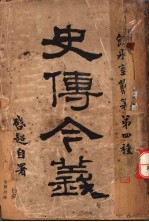 飲冰室叢著第四種
史傳今義
啓超自署